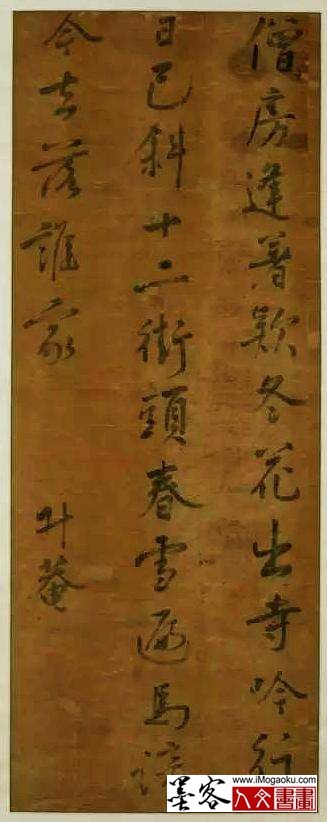 僧房逢著款冬花出寺吟行
日已斜十二街頭春雪遍馬蹄
今去落誰家
菴
www.iMogaoku.com
墨客人文書畫